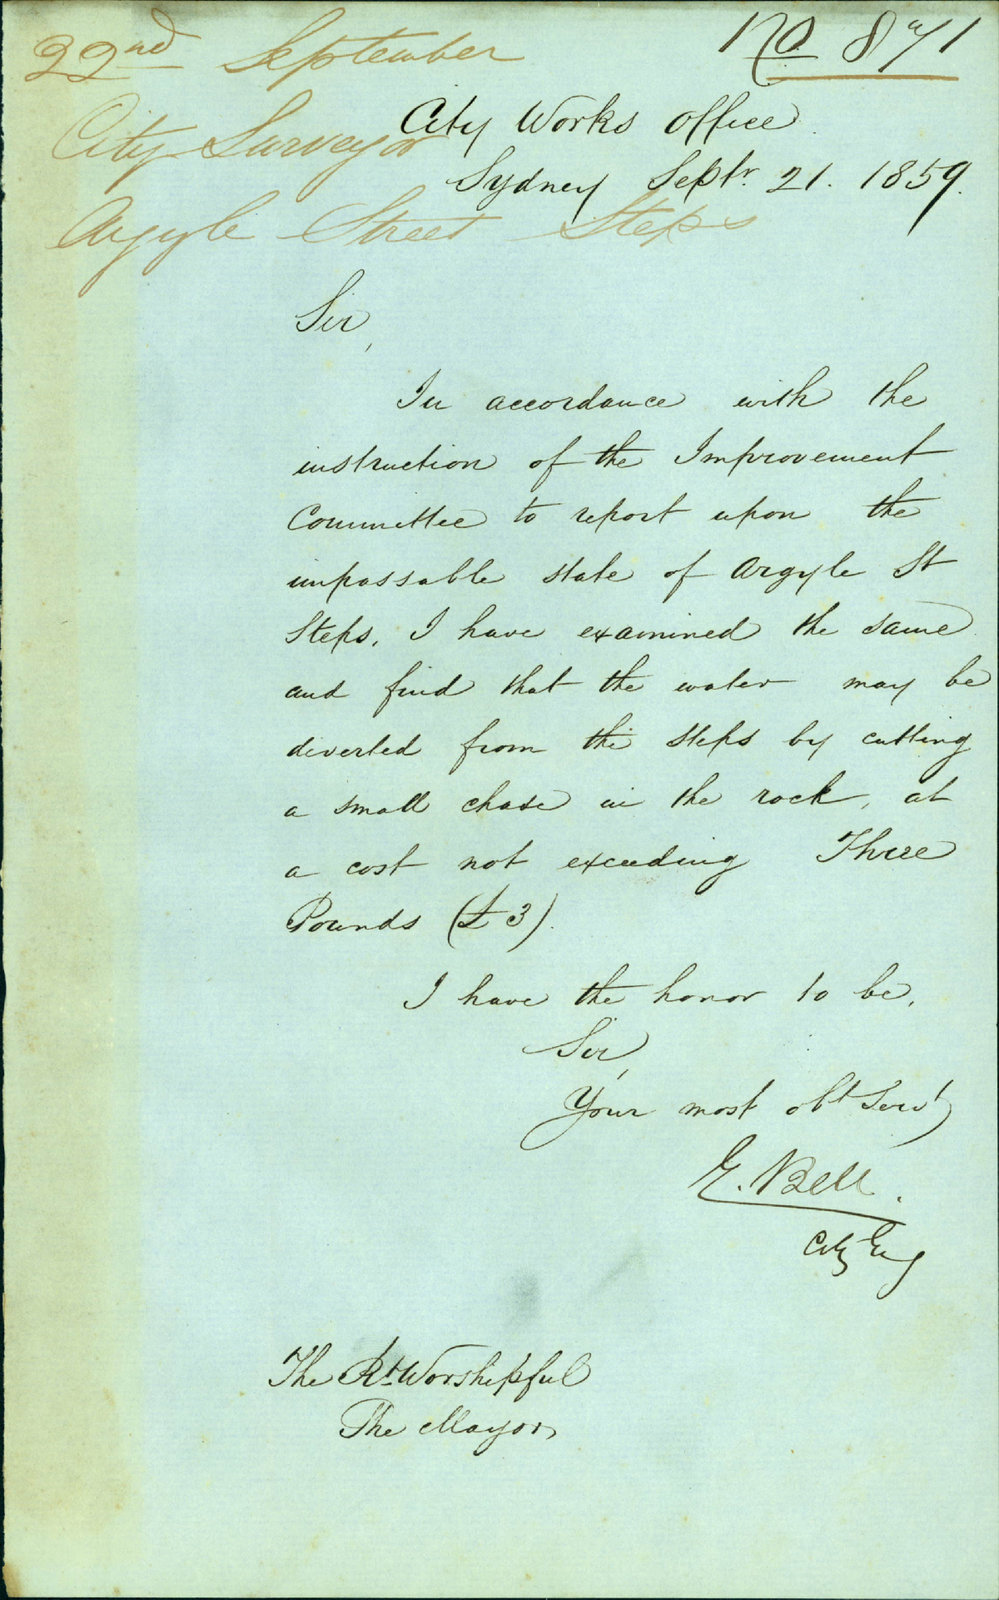 22nd September
No 871
City Surveyor
City Works Office
Sydney Septr. 21. 1859.
Argyle Street Steps
Sir,
In accordance with the
instruction of the Improvement
Committee to report upon the
impassable state of Argyle St
Steps, I have examined the same
and find that the water may be
diverted from the steps by cutting
a small chase in the rock, at
a cost not exceeding Three
Pounds (£3).
I have the honor to be,
Sir,
Your most obt Servt
E. Bell.
City Eng
The Rt. Worshipful
The Mayor